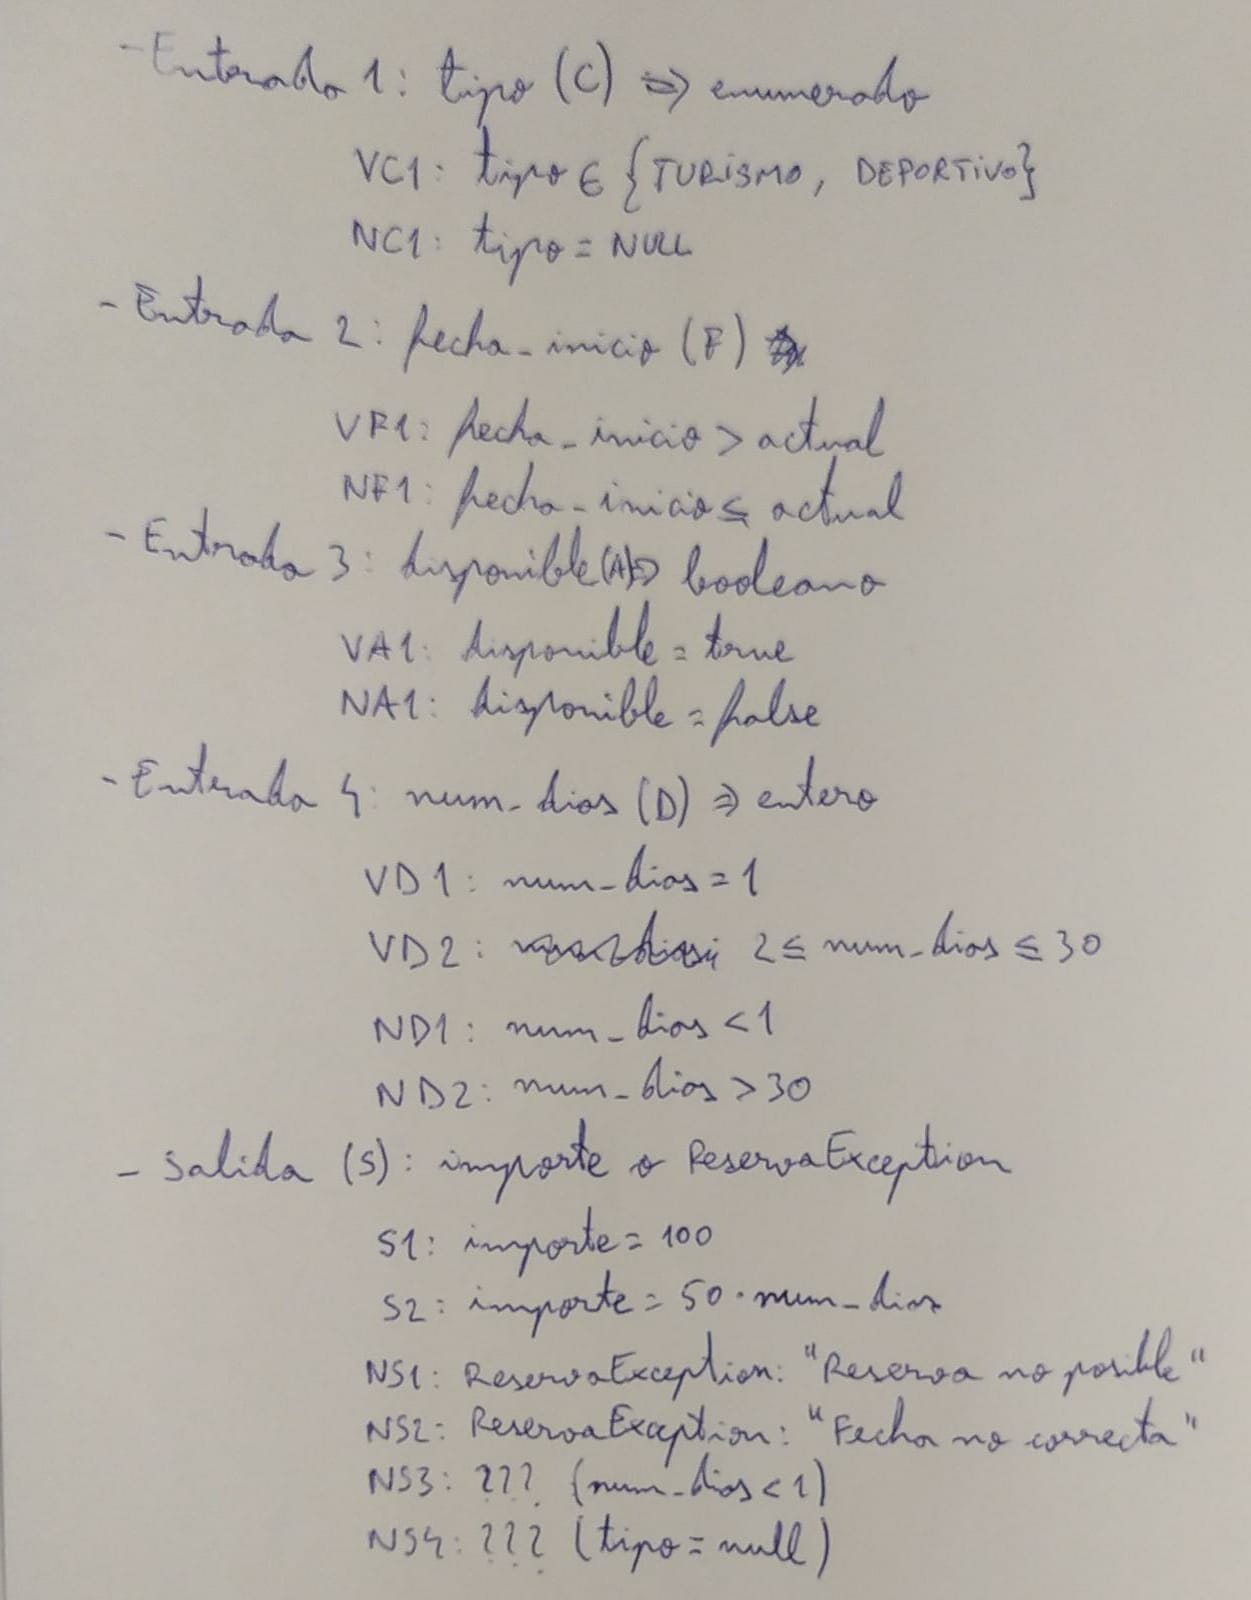 - Entrada 1: tipo (C) => enumerado
VC1: tipo ∈ {TURISMO, DEPORTIVO}
NC1: tipo = NULL
- Entrada 2: fecha_inicio (F)
VF1: fecha_inicio > actual
NF1: fecha_inicio ≤ actual
- Entrada 3: disponible (A) => booleano
VA1: disponible = true
NA1: disponible = false
- Entrada 4: num_dias (D) => entero
VD1: num_dias = 1
VD2: 2 ≤ num_dias ≤ 30
ND1: num_dias < 1
ND2: num_dias > 30
- Salida (S): importe o ReservaException
S1: importe = 100
S2: importe = 50 · num_dias
NS1: ReservaException: "Reserva no posible"
NS2: ReservaException: "Fecha no correcta"
NS3: ??? (num_dias < 1)
NS4: ??? (tipo = null)